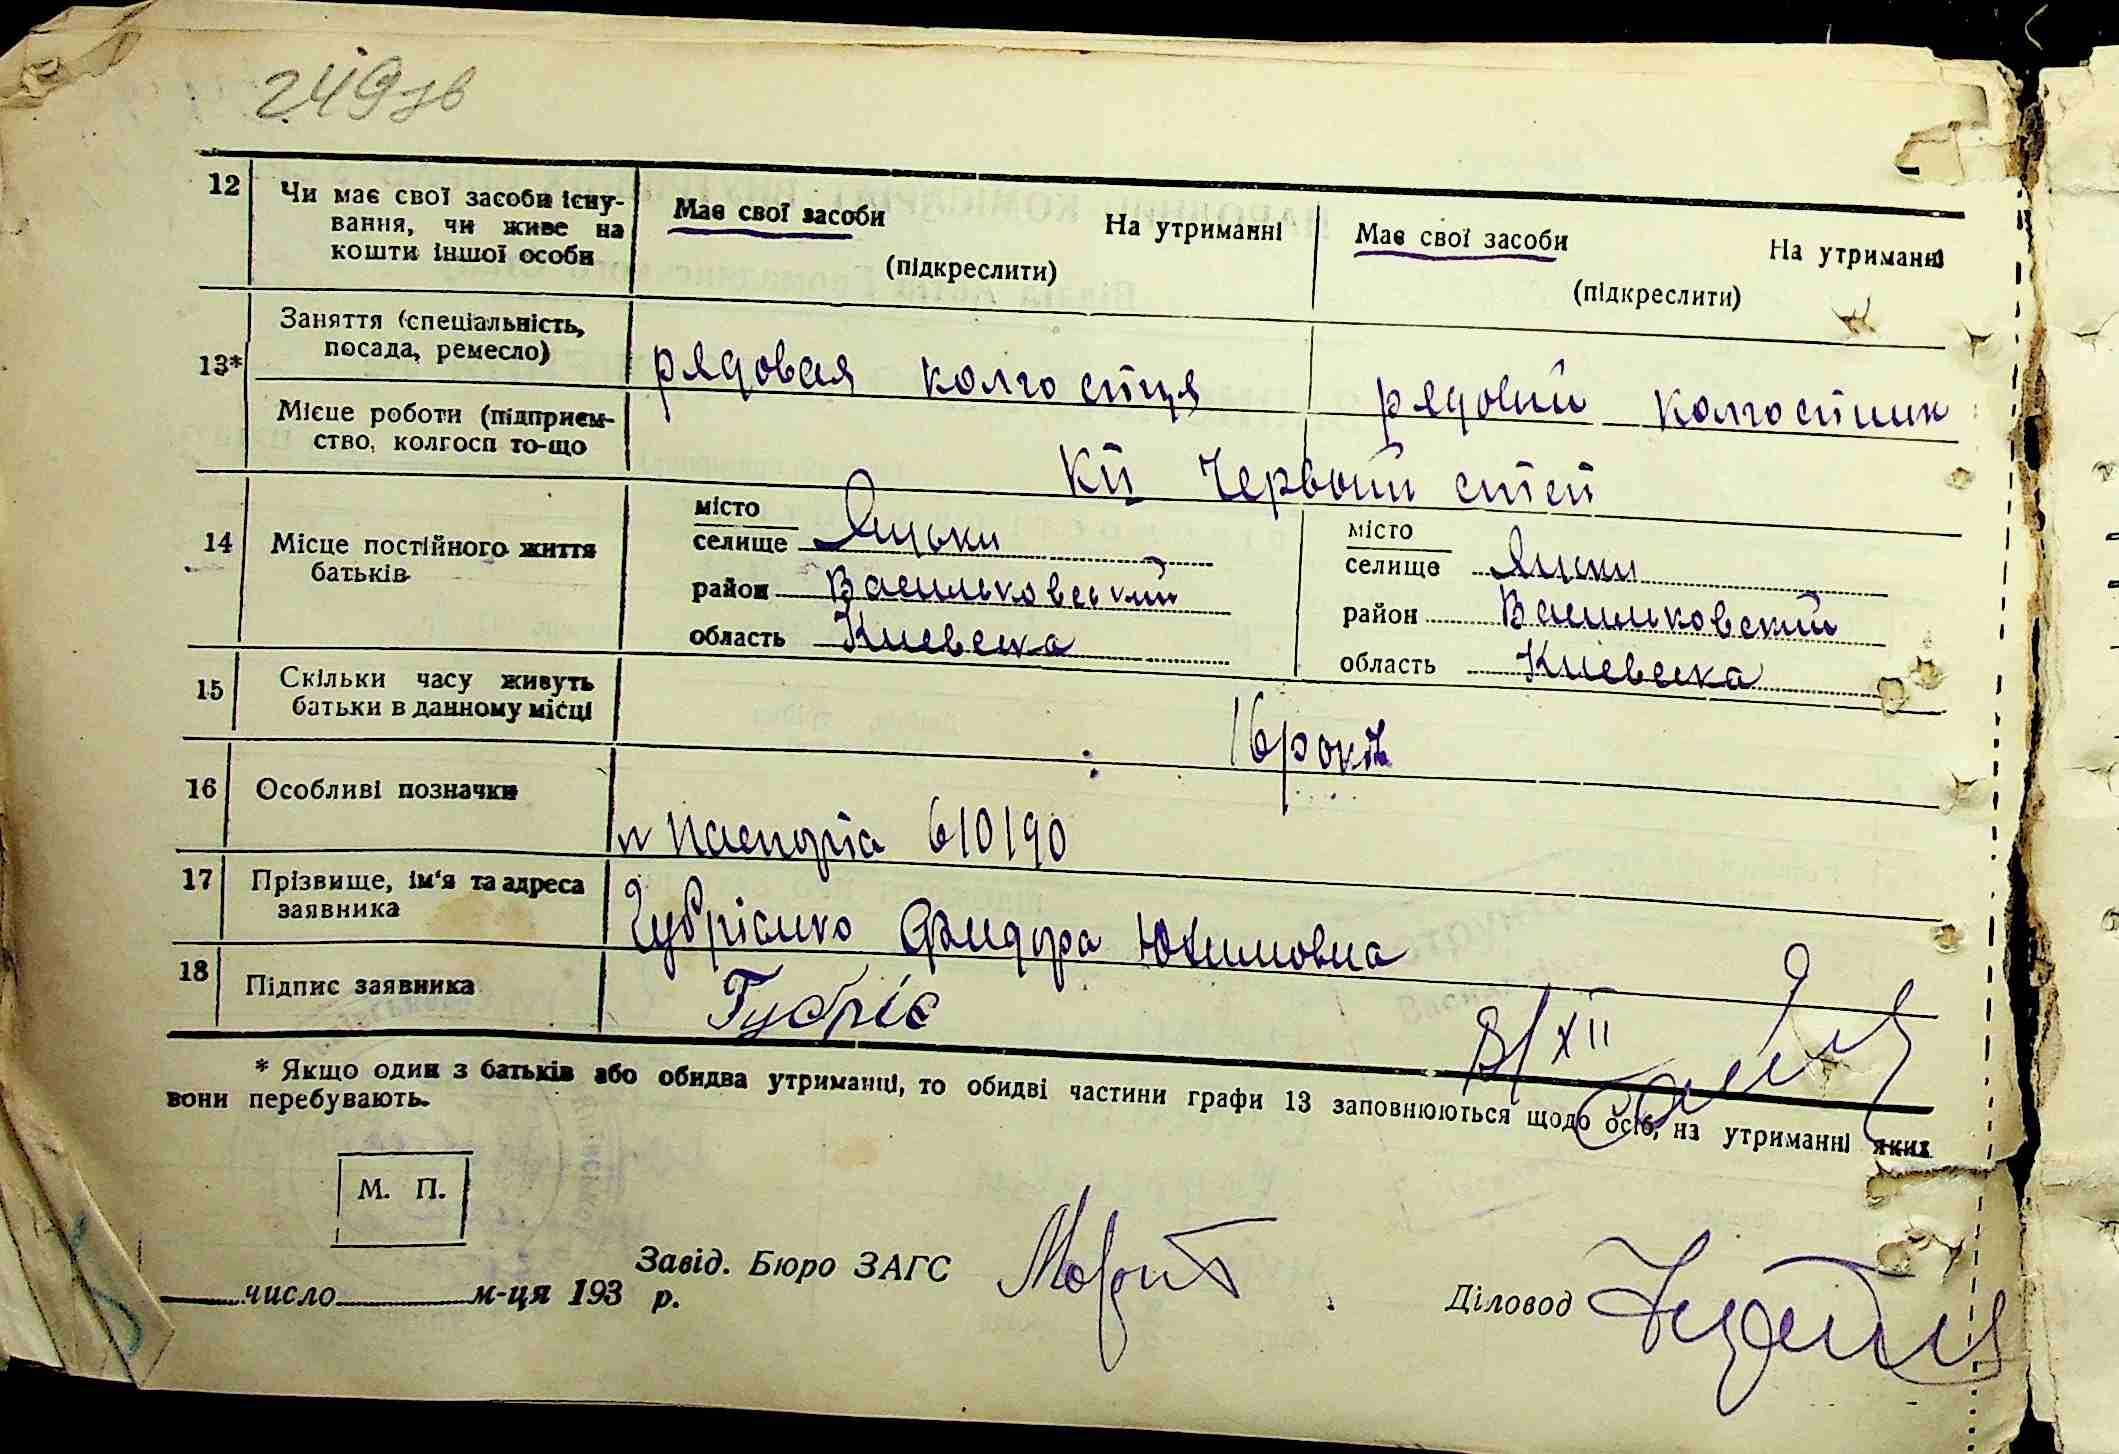 249 зв
12 Чи має свої засоби існу-
вання, чи живе на
кошти іншої особи
Має свої засоби На утриманні
(підкреслити)
Має свої засоби На утриманні
(підкреслити)
13*
Заняття (спеціальність,
посада, ремесло)
рядовая колгоспця
рядовий колгоспник
Місце роботи (підприєм-
ство, колгосп то-що
Червоний степ
14 Місце постійного життя
батьків
місто
селище Яцьки
район Васильковський
область Киевска
місто
селище Яцьки
район Васильковский
область Киевска
15 Скільки часу живуть
батьки в данному місці
16 років
16 Особливі позначки
№ паспорта 610190
17 Прізвище, ім'я та адреса
заявника
Юхимовна
18 Підпис заявника
Губріє
XII
* Якщо один з батьків або обидва утриманці, то обидві частини графи 13 заповнюються щодо осіб, на утриманні яких
вони перебувають.
М. П.
Завід. Бюро ЗАГС
число м-ця 193 р.
Діловод